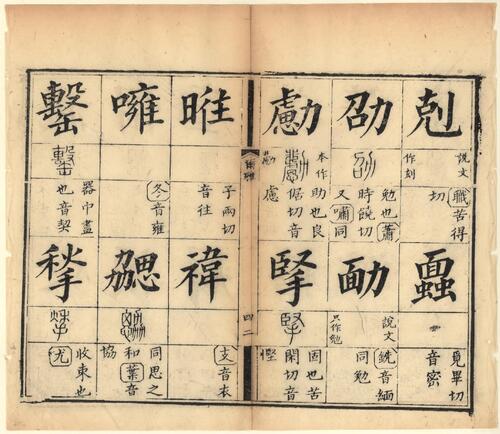 剋
說文
作刻
職苦得
切
劭
勉也蕭
時饒切
又嘯同
勴
本作
勴
助也良
倨切音
慮
覓畢切
音密
勔
說文
只作勉
銑音緬
同勉
掔
固也苦
閑切音
慳
四二
暀
子兩切
音往
噰
冬音雍
罊
器中盡
也音契
禕
支音衣
勰
同思之
和葉音
協
揫
收束也
尤